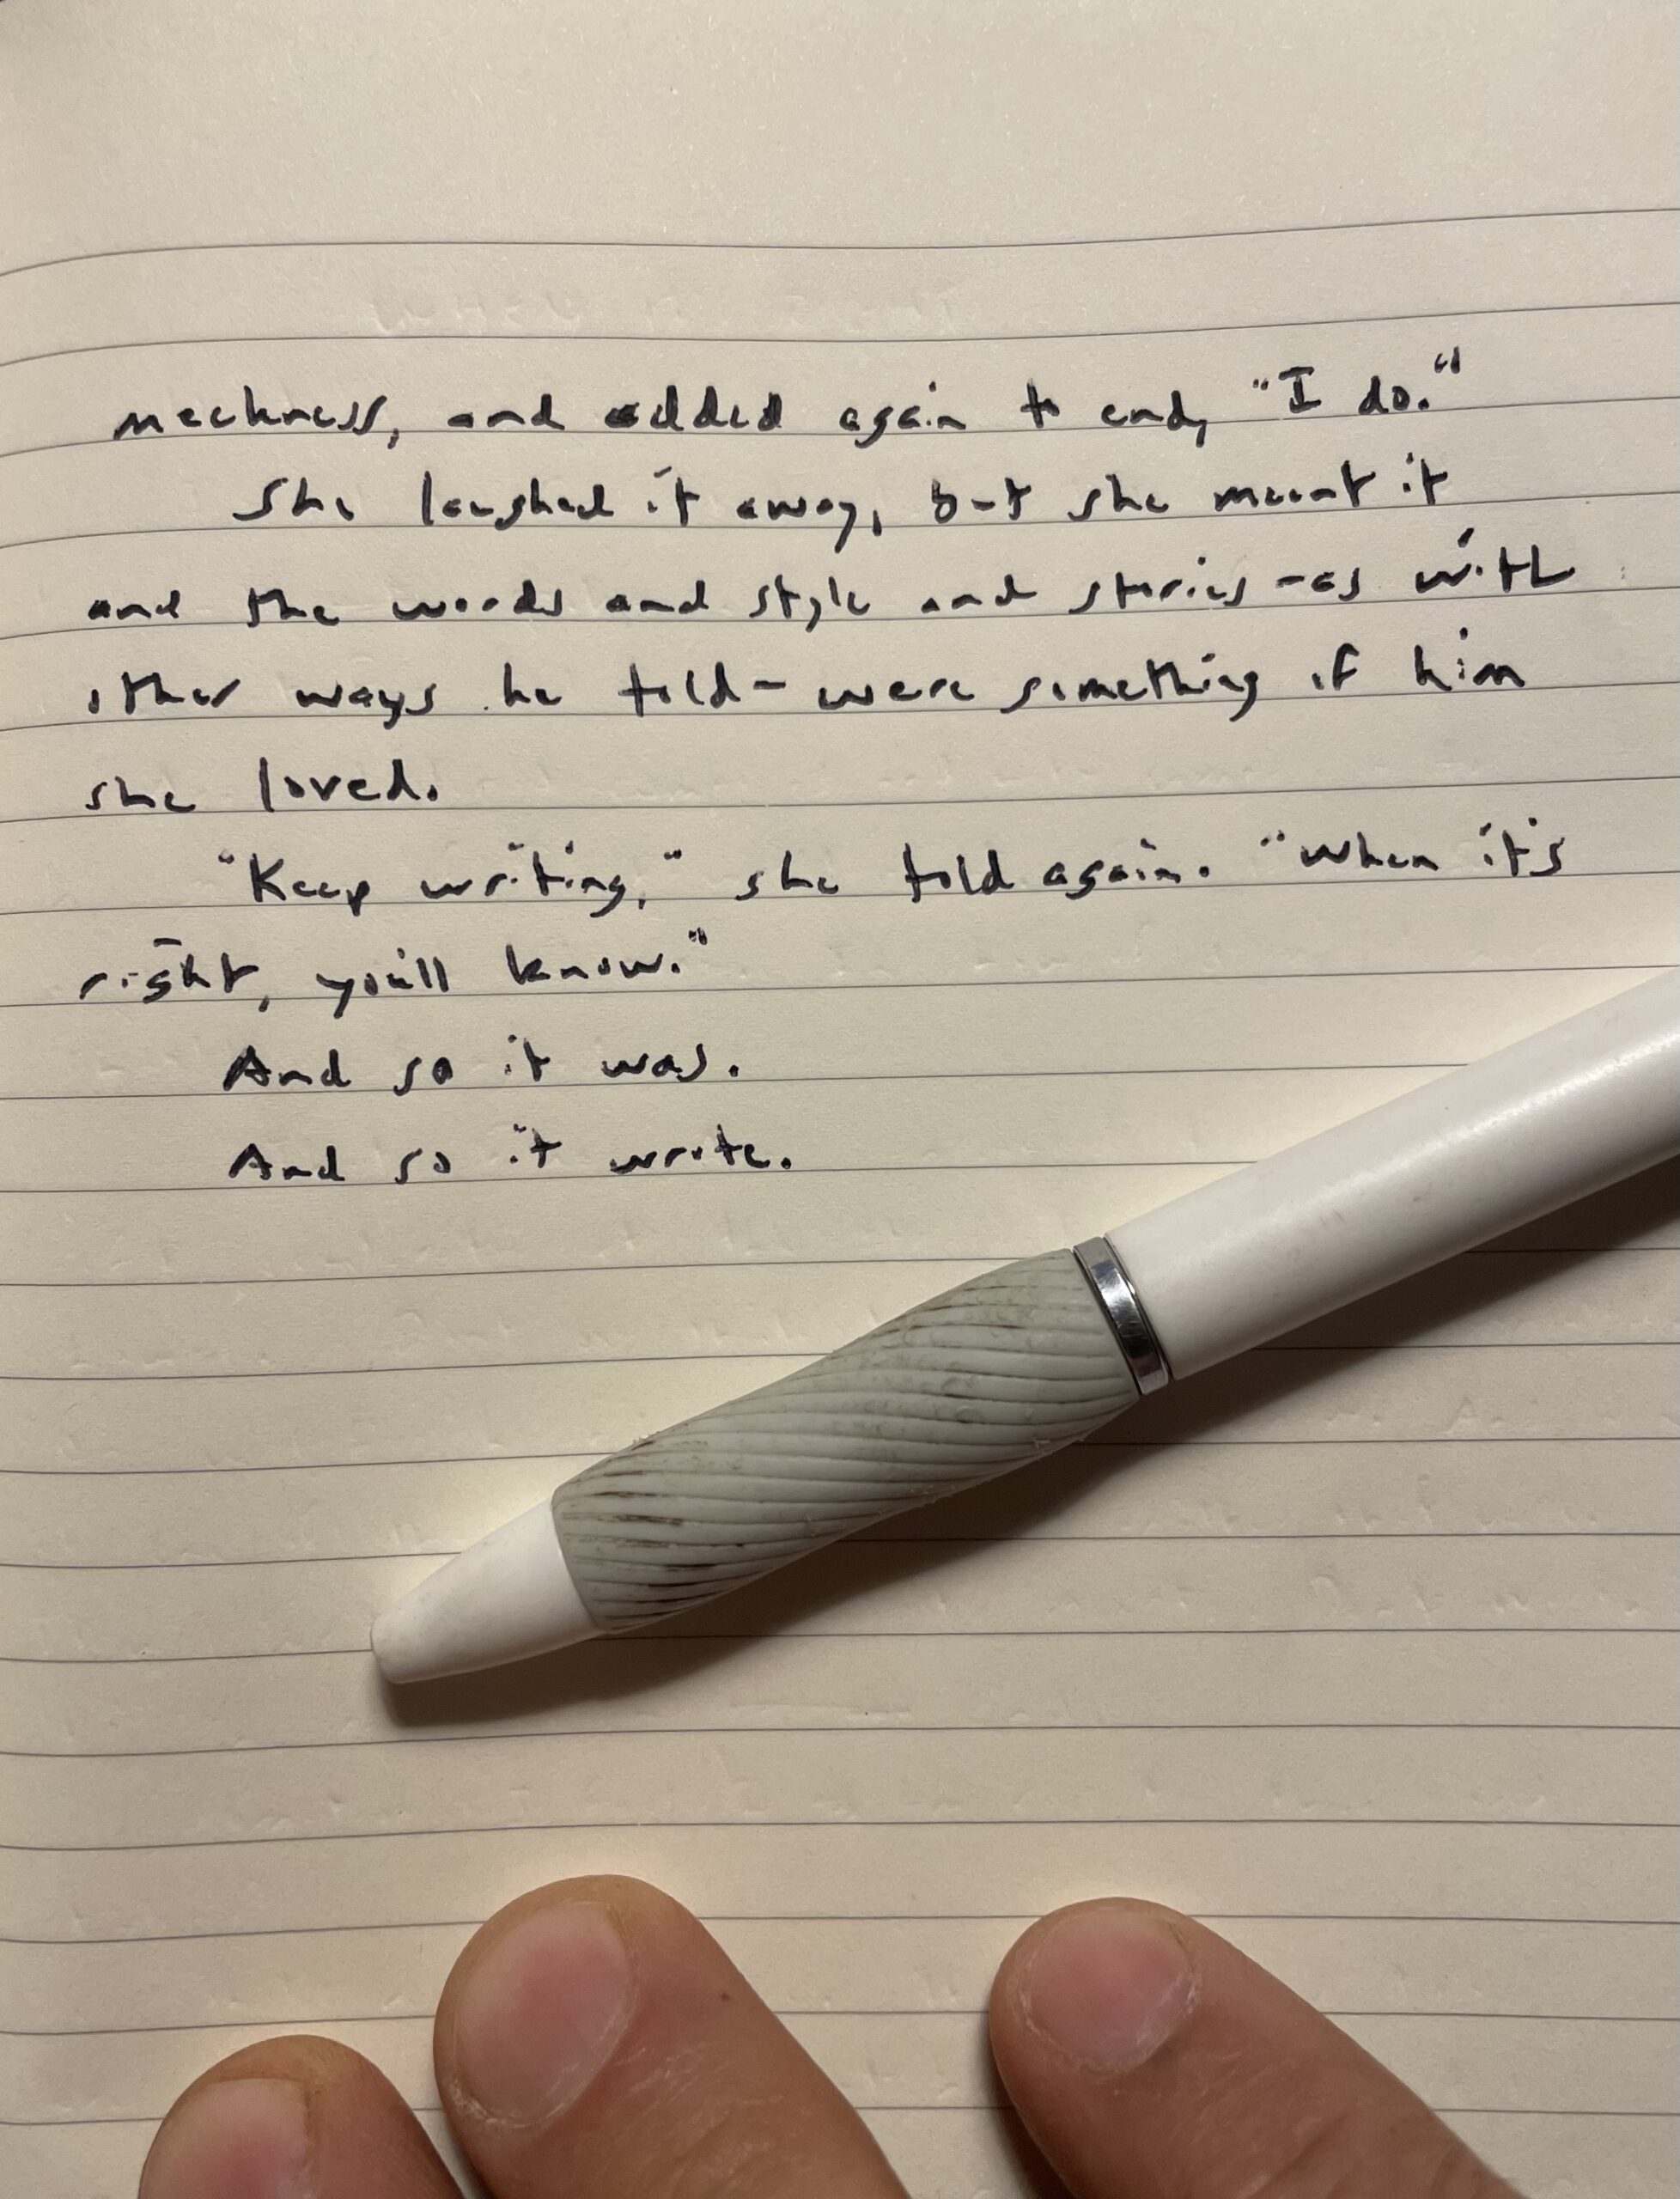 meekness, and added again to end, "I do."
She laughed it away, but she meant it
and the words and style and stories - as with
other ways he told - were something of him
she loved.
"Keep writing," she told again. "When it's
right, you'll know."
And so it was.
And so it wrote.